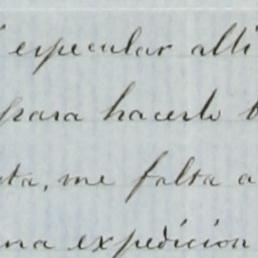 especular alli
para hacerlo
me falta a
expedicion